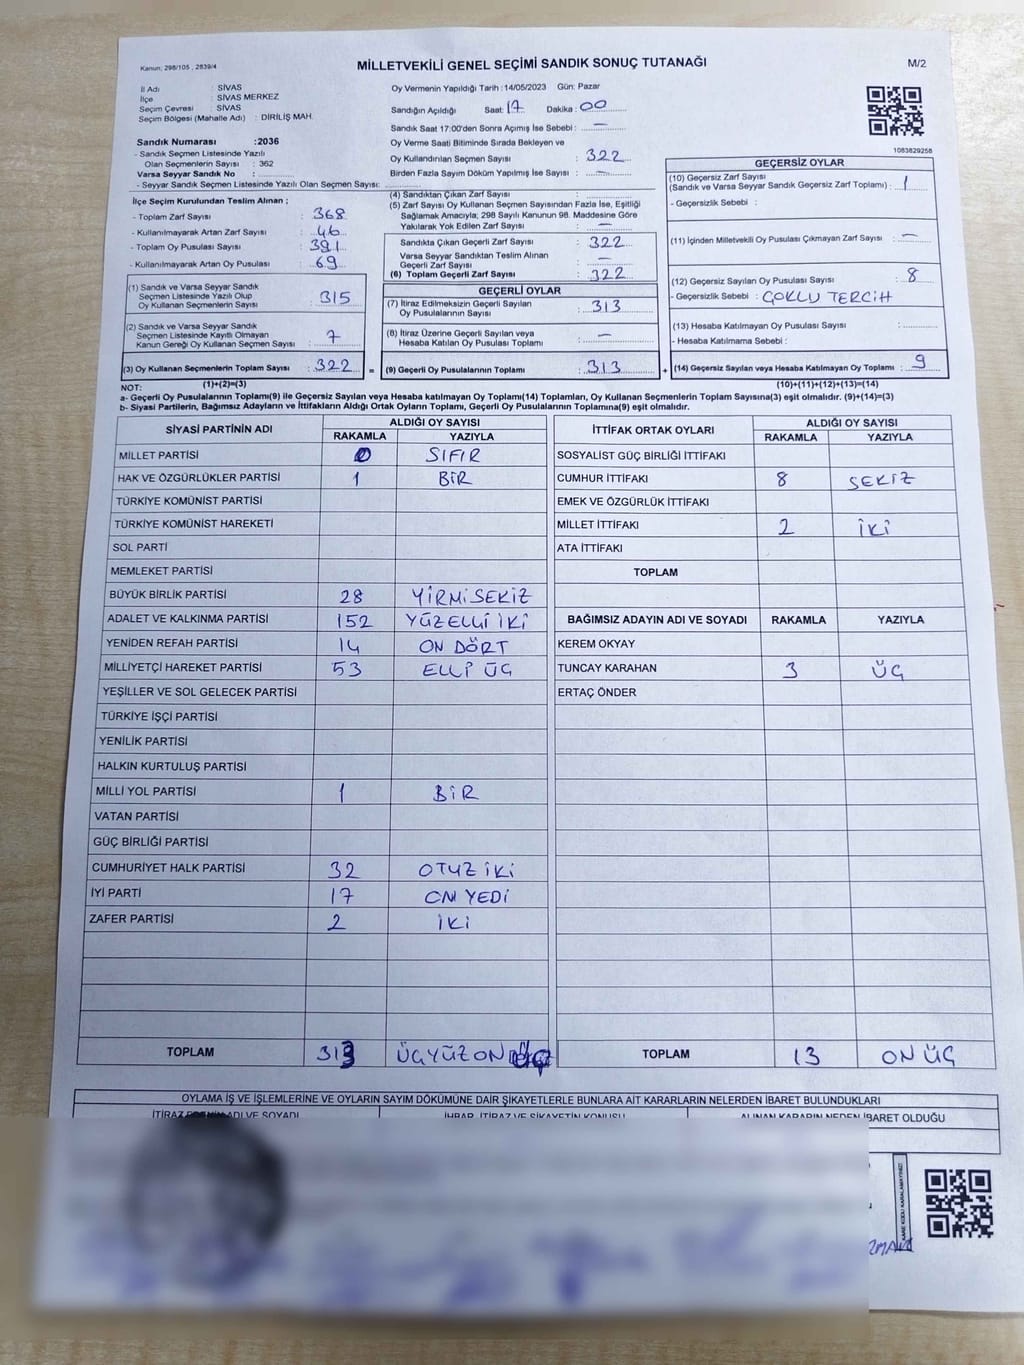 Kanun; 298/105 , 2839/4
MİLLETVEKİLİ GENEL SEÇİMİ SANDIK SONUÇ TUTANAĞI
M/2
İl Adı : SİVAS
İlçe : SİVAS MERKEZ
Seçim Çevresi : SİVAS
Seçim Bölgesi (Mahalle Adı) : DİRİLİŞ MAH.
Sandık Numarası :2036
- Sandık Seçmen Listesinde Yazılı
Olan Seçmenlerin Sayısı : 362
Varsa Seyyar Sandık No :
- Seyyar Sandık Seçmen Listesinde Yazılı Olan Seçmen Sayısı:
Oy Vermenin Yapıldığı Tarih : 14/05/2023 Gün: Pazar
Sandığın Açıldığı Saat: 17 Dakika : 00
Sandık Saat 17:00'den Sonra Açılmış İse Sebebi : —
Oy Verme Saati Bitiminde Sırada Bekleyen ve
Oy Kullandırılan Seçmen Sayısı : 322
Birden Fazla Sayım Döküm Yapılmış İse Sayısı : —
1083829258
İlçe Seçim Kurulundan Teslim Alınan ;
- Toplam Zarf Sayısı : 368
- Kullanılmayarak Artan Zarf Sayısı : 46
- Toplam Oy Pusulası Sayısı : 391
- Kullanılmayarak Artan Oy Pusulası : 69
(1) Sandık ve Varsa Seyyar Sandık
Seçmen Listesinde Yazılı Olup
Oy Kullanan Seçmenlerin Sayısı : 315
(2) Sandık ve Varsa Seyyar Sandık
Seçmen Listesinde Kayıtlı Olmayan
Kanun Gereği Oy Kullanan Seçmen Sayısı : 7
(3) Oy Kullanan Seçmenlerin Toplam Sayısı : 322 =
(4) Sandıktan Çıkan Zarf Sayısı :
(5) Zarf Sayısı Oy Kullanan Seçmen Sayısından Fazla İse, Eşitliği
Sağlamak Amacıyla; 298 Sayılı Kanunun 98. Maddesine Göre
Yakılarak Yok Edilen Zarf Sayısı : —
Sandıkta Çıkan Geçerli Zarf Sayısı : 322
Varsa Seyyar Sandıktan Teslim Alınan
Geçerli Zarf Sayısı : —
(6) Toplam Geçerli Zarf Sayısı : 322
GEÇERLİ OYLAR
(7) İtiraz Edilmeksizin Geçerli Sayılan
Oy Pusulalarının Sayısı : 313
(8) İtiraz Üzerine Geçerli Sayılan veya
Hesaba Katılan Oy Pusulası Toplamı : —
(9) Geçerli Oy Pusulalarının Toplamı : 313 +
GEÇERSİZ OYLAR
(10) Geçersiz Zarf Sayısı
(Sandık ve Varsa Seyyar Sandık Geçersiz Zarf Toplamı) : 1
- Geçersizlik Sebebi :
(11) İçinden Milletvekili Oy Pusulası Çıkmayan Zarf Sayısı : —
(12) Geçersiz Sayılan Oy Pusulası Sayısı : 8
- Geçersizlik Sebebi : ÇOKLU TERCİH
(13) Hesaba Katılmayan Oy Pusulası Sayısı :
- Hesaba Katılmama Sebebi :
(14) Geçersiz Sayılan veya Hesaba Katılmayan Oy Toplamı : 9
NOT: (1)+(2)=(3) (10)+(11)+(12)+(13)=(14)
a- Geçerli Oy Pusulalarının Toplamı(9) ile Geçersiz Sayılan veya Hesaba katılmayan Oy Toplamı(14) Toplamları, Oy Kullanan Seçmenlerin Toplam Sayısına(3) eşit olmalıdır. (9)+(14)=(3)
b- Siyasi Partilerin, Bağımsız Adayların ve İttifakların Aldığı Ortak Oyların Toplamı, Geçerli Oy Pusulalarının Toplamına(9) eşit olmalıdır.
SİYASİ PARTİNİN ADI ALDIĞI OY SAYISI
RAKAMLA YAZIYLA
MİLLET PARTİSİ 0 SIFIR
HAK VE ÖZGÜRLÜKLER PARTİSİ 1 BİR
TÜRKİYE KOMÜNİST PARTİSİ
TÜRKİYE KOMÜNİST HAREKETİ
SOL PARTİ
MEMLEKET PARTİSİ
BÜYÜK BİRLİK PARTİSİ 28 YİRMİSEKİZ
ADALET VE KALKINMA PARTİSİ 152 YÜZELLİ İKİ
YENİDEN REFAH PARTİSİ 14 ON DÖRT
MİLLİYETÇİ HAREKET PARTİSİ 53 ELLİ ÜÇ
YEŞİLLER VE SOL GELECEK PARTİSİ
TÜRKİYE İŞÇİ PARTİSİ
YENİLİK PARTİSİ
HALKIN KURTULUŞ PARTİSİ
MİLLİ YOL PARTİSİ 1 BİR
VATAN PARTİSİ
GÜÇ BİRLİĞİ PARTİSİ
CUMHURİYET HALK PARTİSİ 32 OTUZ İKİ
İYİ PARTİ 17 ON YEDİ
ZAFER PARTİSİ 2 İKİ
TOPLAM 313 ÜÇYÜZ ON
İTTİFAK ORTAK OYLARI ALDIĞI OY SAYISI
RAKAMLA YAZIYLA
SOSYALİST GÜÇ BİRLİĞİ İTTİFAKI
CUMHUR İTTİFAKI 8 SEKİZ
EMEK VE ÖZGÜRLÜK İTTİFAKI
MİLLET İTTİFAKI 2 İKİ
ATA İTTİFAKI
TOPLAM
BAĞIMSIZ ADAYIN ADI VE SOYADI RAKAMLA YAZIYLA
KEREM OKYAY
TUNCAY KARAHAN 3 ÜÇ
ERTAÇ ÖNDER
TOPLAM 13 ON ÜÇ
OYLAMA İŞ VE İŞLEMLERİNE VE OYLARIN SAYIM DÖKÜMÜNE DAİR ŞİKAYETLERLE BUNLARA AİT KARARLARIN NELERDEN İBARET BULUNDUKLARI
İTİRAZ EDENİN ADI VE SOYADI İHBAR, İTİRAZ VE ŞİKAYETİN KONUSU ALINAN KARARIN NEDEN İBARET OLDUĞU